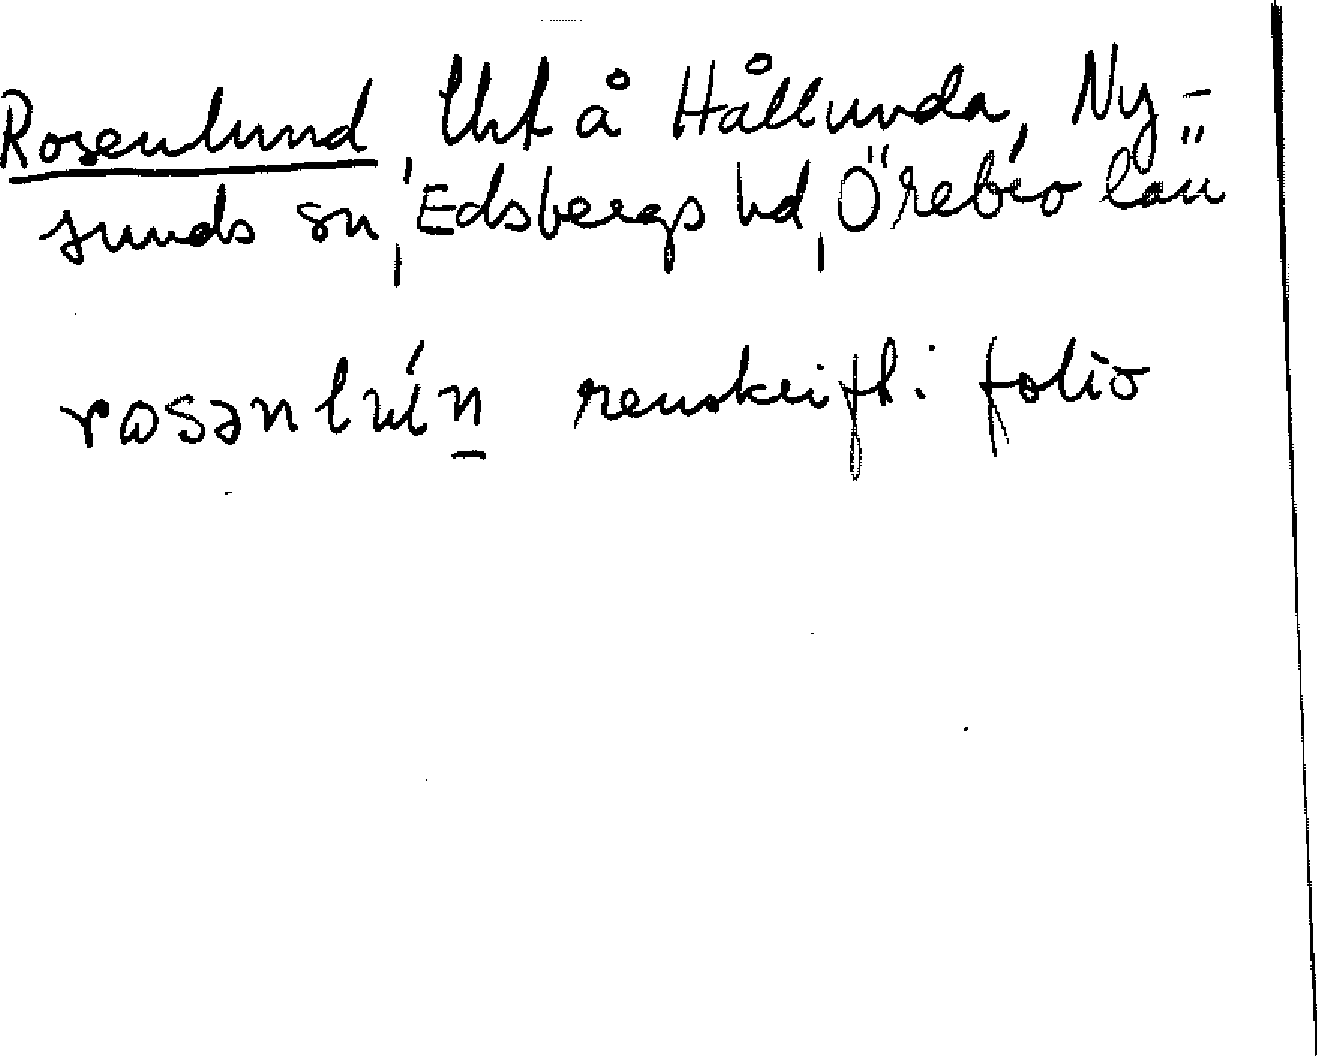 Rosenlund, Uht å Hållunda, Ny-
sunds sn, Edsbergs hd, Örebro län
rosənlún renskrift: folio